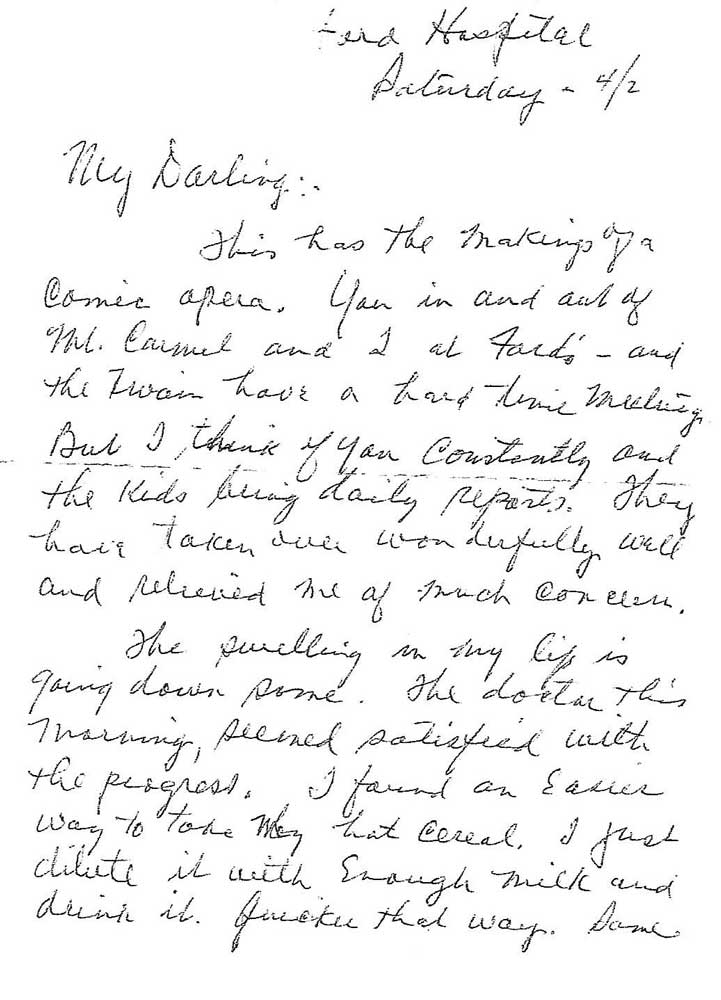 Ford Hospital
Saturday - 4/2
My Darling:-
This has the makings of a
Comic opera. You in and out of
Mt. Carmel and I at Ford's - and
the Twain have a hard time Meeting.
But I think of you Constantly and
the Kids bring daily reports. They
have taken over wonderfully well
and relieved me of much concern.
The swelling in my lip is
going down some. The doctor this
Morning, seemed satisfied with
the progress. I found an Easier
way to take My hot cereal. I just
dilute it with Enough Milk and
drink it. Quicker that way. Some